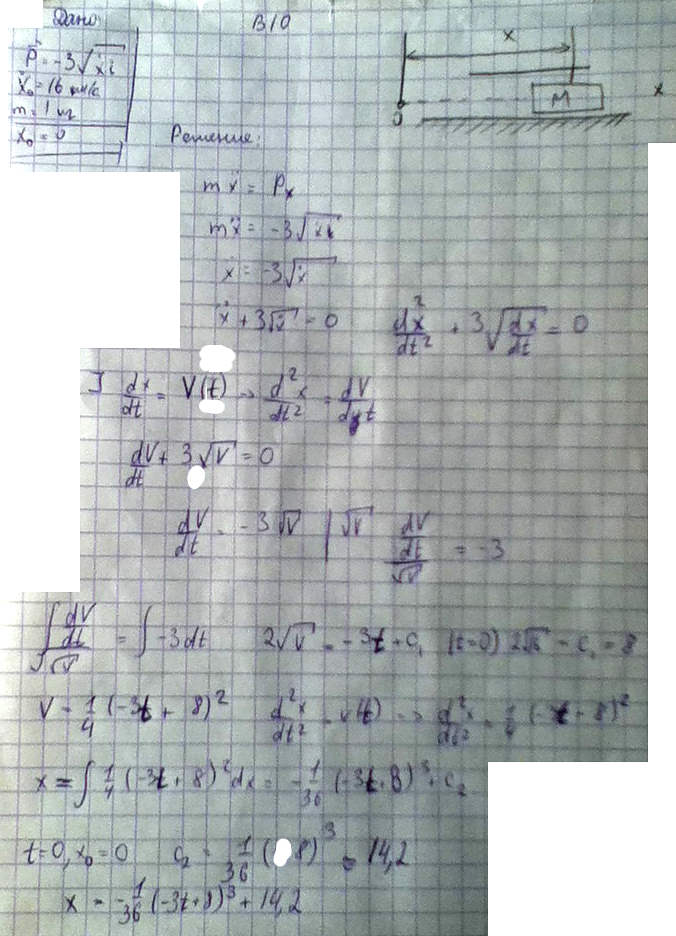 Дано:
В10
P = -3√ẋ
ẋ₀ = 16 м/с
m = 1 кг
x₀ = 0
x
M
x
0
Решение:
mẍ = Pₓ
mẍ = -3√ẋ
ẍ = -3√ẋ
ẍ + 3√ẋ = 0 d²x/dt² + 3√(dx/dt) = 0
dx/dt = V(t) → d²x/dt² = dV/dt
dV/dt + 3√V = 0
dV/dt = -3√V | √V (dV/dt)/√V = -3
∫ (dV/dt)/√V = ∫ -3dt 2√V = -3t + C₁ (t=0) 2√16 = C₁ = 8
V = 1/4 (-3t + 8)² d²x/dt² = v(t) → d²x/dt² = 1/4 (-t + 8)²
x = ∫ 1/4 (-3t + 8)² dx = -1/36 (-3t + 8)³ + C₂
t=0, x₀=0 C₂ = 1/36 (8)³ = 14,2
x = -1/36 (-3t+8)³ + 14,2